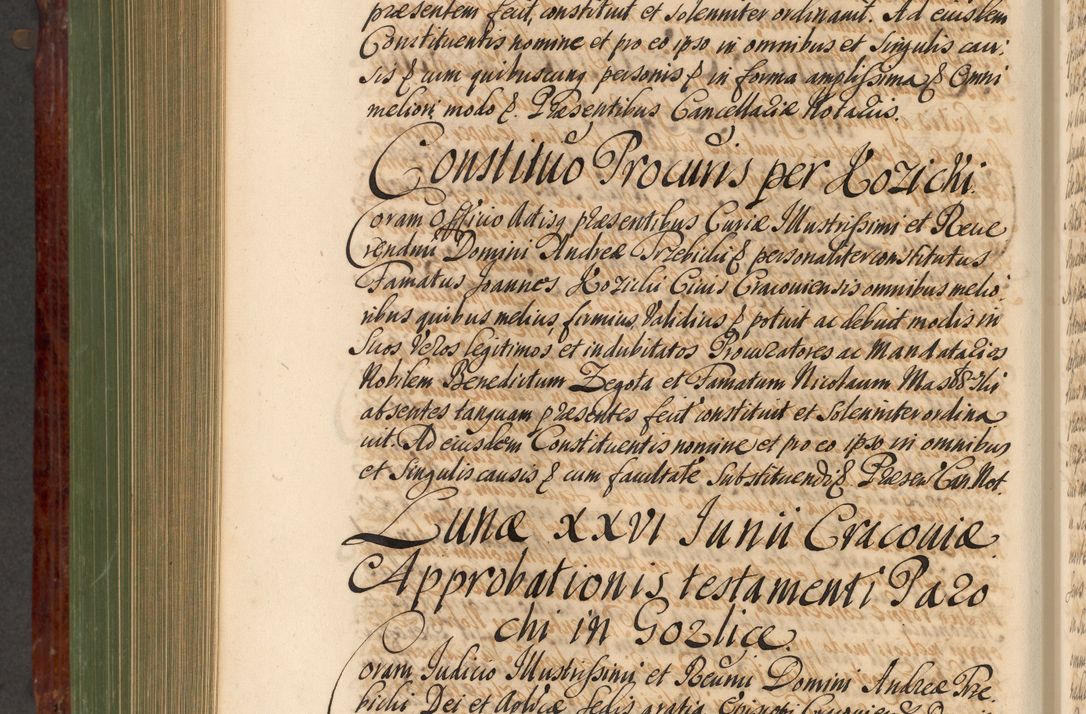 præsentem fecit, constituit et solenniter ordinavit. Ad eiusdem
Constituentis nomine et pro eo ipso in omnibus et singulis cau,
sis & cum quibuscunq personis & in forma amplissima & Omni
meliori modo &. Præsentibus Cancellariæ Notariis.
Constituõ Procuris per Kozicki.
Coram Officio Actisq præsentibus Curiæ Illustrissimi et Reve
rendmi Domini Andreæ Trzebicki & personaliter constitutus
Famatus Joannes Kozicki Civis Cracoviensis omnibus melio,
ribus quibus melius, firmius, Validius & potuit ac debuit modis in
Suos Veros legitimos et indubitatos Procuratores ac Mandatarios
Nobilem Benedictum Zegota et Famatum Nicolaum
absentes tanquam præsentes fecit constituit et Solenniter ordina
vit. Ad eiusdem Constituentis nomine et pro eo ipso in omnibus
et Singulis causis & cum facultate Substituendi & Præsen Can. Not.
Lunæ XXVI Junii Cracoviæ
Approbationis testamenti Paro
chi in Gorlice
Coram Judicio Illustrissimi et Reundi Domini Andreæ Trze
bicki Dei et Aplicæ Sedis gratia Episcopi